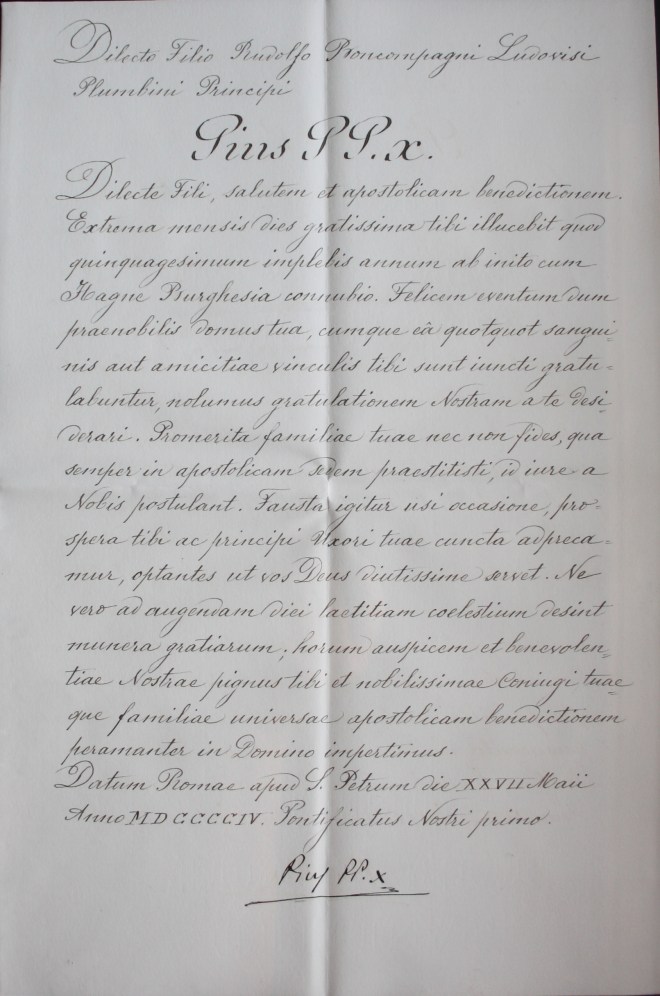 Dilecto Filio Rudolfo Boncompagni Ludovisi
Plumbini Principi
Pius PP. X.
Dilecte Fili, salutem et apostolicam benedictionem.
Extrema mensis dies gratissima tibi illucebit quod
quinquagesimum implebis annum ab inito cum
Hagne Burghesia connubio. Felicem eventum dum
praenobilis domus tua, cumque eâ quotquot sangui-
nis aut amicitiae vinculis tibi sunt iuncti gratu-
labuntur, nolumus gratulationem Nostram a te desi-
derari. Promerita familiae tuae nec non fides, qua
semper in apostolicam Sedem praestitisti, id iure a
Nobis postulant. Fausta igitur usi occasione, pro-
spera tibi ac principi Uxori tuae cuncta adpreca-
mur, optantes ut vos Deus diutissime servet. Ne
vero ad augendam diei laetitiam coelestium desint
munera gratiarum; horum auspicem et benevolen-
tiae Nostrae pignus tibi et nobilissimae Coniugi tuae-
que familiae universae apostolicam benedictionem
peramanter in Domino impertimus.
Datum Romae apud S. Petrum die XXVII Maii
Anno MDCCCCIV. Pontificatus Nostri primo.
Pius PP. X